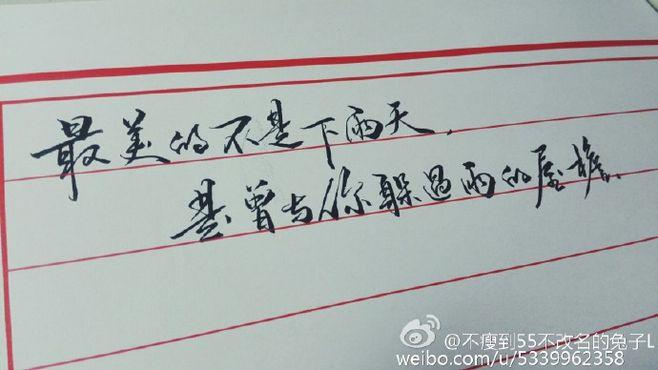 最美的不是下雨天.
是曾与你躲过雨的屋檐.
@不瘦到55不改名的兔子L
weibo.com/u/5339962358